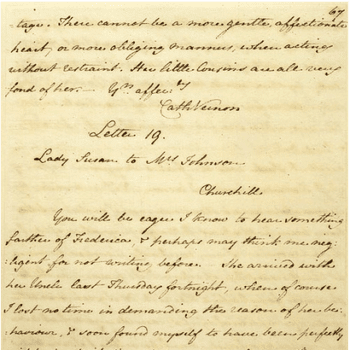 67
tage. There cannot be a more gentle, affectionate
heart, or more obliging manners, when acting
without restraint. Her little Cousins are all very
fond of her.— Yrs affecly
Cath Vernon
Letter 19.
Lady Susan to Mrs Johnson
Churchill.
You will be eager I know to hear something
farther of Frederica, & perhaps may think me neg:
:ligent for not writing before. She arrived with
her Uncle last Thursday fortnight, when of course
I lost no time in demanding the reason of her be:
:haviour, & soon found myself to have been perfectly